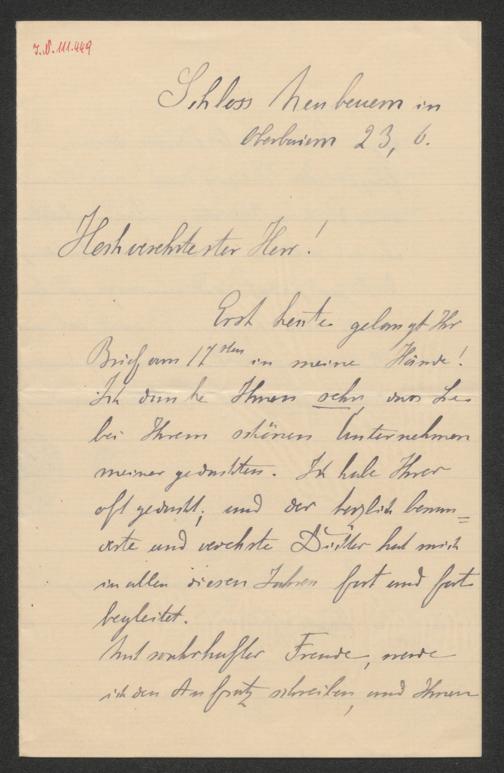 J.N. 111.449
Schloss Neubeuern in
Oberbaiern 23, 6.
Hochverehrtester Herr!
Erst heute gelangt Ihr
Brief vom 17ten in meine Hände!
Ich danke Ihnen sehr, dass Sie
bei Ihrem schönen Unternehmen
meiner gedachten. Ich habe Ihrer
oft gedacht; und der herzlich bewun=
derte und verehrte Dichter hat mich
in allen diesen Jahren fort und fort
begleitet.
Mit wahrhafter Freude, werde
ich den Aufsatz schreiben, und Ihnen